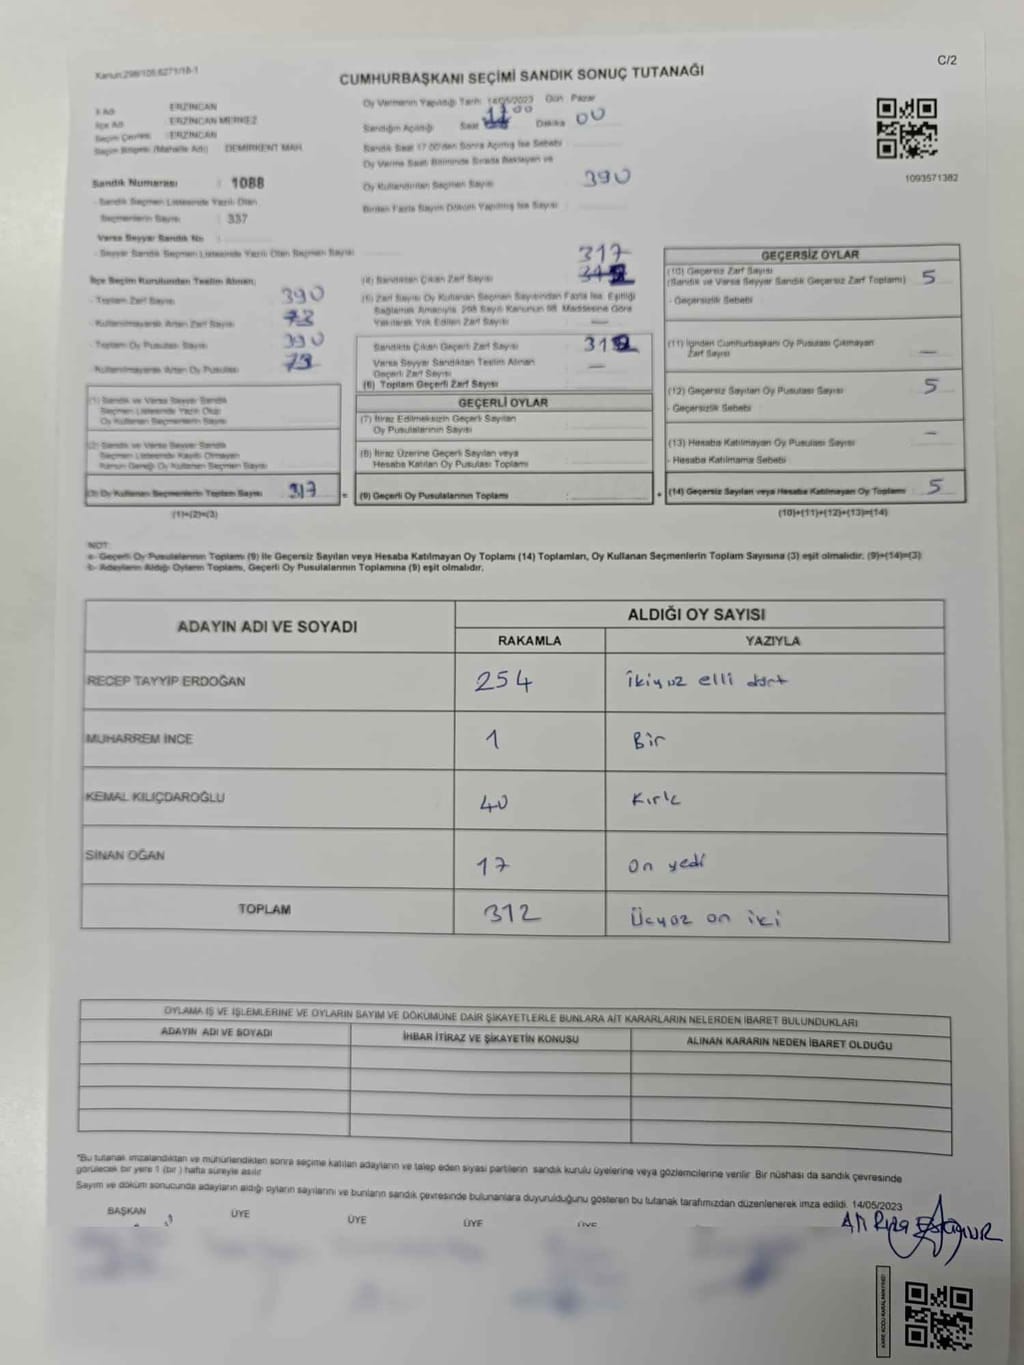 Kanun:298/105,6271/16-1
C/2
CUMHURBAŞKANI SEÇİMİ SANDIK SONUÇ TUTANAĞI
İl Adı : ERZİNCAN
İlçe Adı : ERZİNCAN MERKEZ
Seçim Çevresi : ERZİNCAN
Seçim Bölgesi (Mahalle Adı) DEMİRKENT MAH.
Sandık Numarası : 1088
- Sandık Seçmen Listesinde Yazılı Olan
Seçmenlerin Sayısı : 337
Varsa Seyyar Sandık No :
- Seyyar Sandık Seçmen Listesinde Yazılı Olan Seçmen Sayısı
Oy Vermenin Yapıldığı Tarih: 14/05/2023 Gün : Pazar
Sandığın Açıldığı Saat Dakika 00
Sandık Saat 17.00'den Sonra Açılmış İse Sebebi :
Oy Verme Saati Bitiminde Sırada Bekleyen ve
Oy Kullandırılan Seçmen Sayısı : 390
Birden Fazla Sayım Döküm Yapılmış İse Sayısı :
1093571382
İlçe Seçim Kurulundan Teslim Alınan;
- Toplam Zarf Sayısı : 390
- Kullanılmayarak Artan Zarf Sayısı : 73
- Toplam Oy Pusulası Sayısı : 390
- Kullanılmayarak Artan Oy Pusulası : 73
(1) Sandık ve Varsa Seyyar Sandık
Seçmen Listesinde Yazılı Olup
Oy Kullanan Seçmenlerin Sayısı
(2) Sandık ve Varsa Seyyar Sandık
Seçmen Listesinde Kayıtlı Olmayan
Kanun Gereği Oy Kullanan Seçmen Sayısı
(3) Oy Kullanan Seçmenlerin Toplam Sayısı : 317
(1)+(2)=(3)
317
(4) Sandıktan Çıkan Zarf Sayısı
(5) Zarf Sayısı Oy Kullanan Seçmen Sayısından Fazla İse, Eşitliği
Sağlamak Amacıyla, 298 Sayılı Kanunun 98. Maddesine Göre
Yakılarak Yok Edilen Zarf Sayısı : —
Sandıkta Çıkan Geçerli Zarf Sayısı : 312
Varsa Seyyar Sandıktan Teslim Alınan
Geçerli Zarf Sayısı : —
(6) Toplam Geçerli Zarf Sayısı
GEÇERLİ OYLAR
(7) İtiraz Edilmeksizin Geçerli Sayılan
Oy Pusulalarının Sayısı :
(8) İtiraz Üzerine Geçerli Sayılan veya
Hesaba Katılan Oy Pusulası Toplamı :
= (9) Geçerli Oy Pusulalarının Toplamı :
GEÇERSİZ OYLAR
(10) Geçersiz Zarf Sayısı
(Sandık ve Varsa Seyyar Sandık Geçersiz Zarf Toplamı) : 5
- Geçersizlik Sebebi
(11) İçinden Cumhurbaşkanı Oy Pusulası Çıkmayan
Zarf Sayısı : —
(12) Geçersiz Sayılan Oy Pusulası Sayısı : 5
- Geçersizlik Sebebi
(13) Hesaba Katılmayan Oy Pusulası Sayısı : —
- Hesaba Katılmama Sebebi
+ (14) Geçersiz Sayılan veya Hesaba Katılmayan Oy Toplamı : 5
(10)+(11)+(12)+(13)=(14)
NOT:
a- Geçerli Oy Pusulalarının Toplamı (9) ile Geçersiz Sayılan veya Hesaba Katılmayan Oy Toplamı (14) Toplamları, Oy Kullanan Seçmenlerin Toplam Sayısına (3) eşit olmalıdır. (9)+(14)=(3)
b- Adayların Aldığı Oyların Toplamı, Geçerli Oy Pusulalarının Toplamına (9) eşit olmalıdır.
ADAYIN ADI VE SOYADI ALDIĞI OY SAYISI
RAKAMLA YAZIYLA
RECEP TAYYİP ERDOĞAN 254 İkiyüz elli dört
MUHARREM İNCE 1 Bir
KEMAL KILIÇDAROĞLU 40 Kırk
SİNAN OĞAN 17 On yedi
TOPLAM 312 Üçyüz on iki
OYLAMA İŞ VE İŞLEMLERİNE VE OYLARIN SAYIM VE DÖKÜMÜNE DAİR ŞİKAYETLERLE BUNLARA AİT KARARLARIN NELERDEN İBARET BULUNDUKLARI
ADAYIN ADI VE SOYADI İHBAR İTİRAZ VE ŞİKAYETİN KONUSU ALINAN KARARIN NEDEN İBARET OLDUĞU
*Bu tutanak imzalandıktan ve mühürlendikten sonra seçime katılan adayların ve talep eden siyasi partilerin sandık kurulu üyelerine veya gözlemcilerine verilir. Bir nüshası da sandık çevresinde
görülecek bir yere 1 (bir ) hafta süreyle asılır.
Sayım ve döküm sonucunda adayların aldığı oyların sayılarını ve bunların sandık çevresinde bulunanlara duyurulduğunu gösteren bu tutanak tarafımızdan düzenlenerek imza edildi. 14/05/2023
BAŞKAN ÜYE ÜYE ÜYE ÜYE